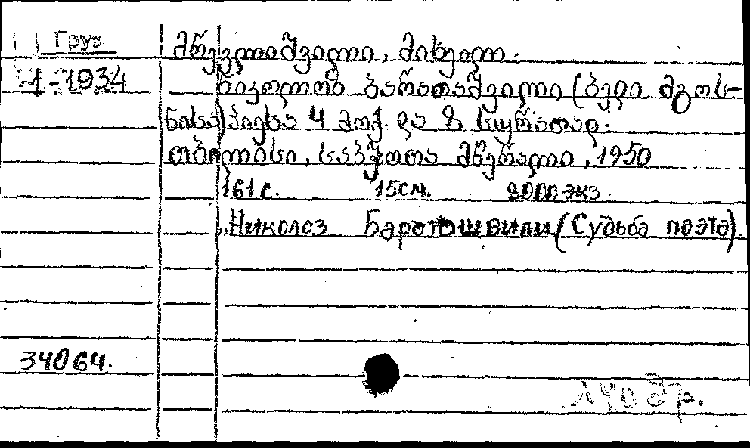 Груз
1-1934
მრევლიშვილი, მიხეილ.
ნიკოლოზ ბარათაშვილი (ბედი მგოს-
ნისა) პიესა 4 მოქ. და 8 სურათად.
თბილისი, საბჭოთა მწერალი, 1950
161 с. 15 см. 2000 экз.
Николоз Бараташвили (Судьба поэта).
34064.